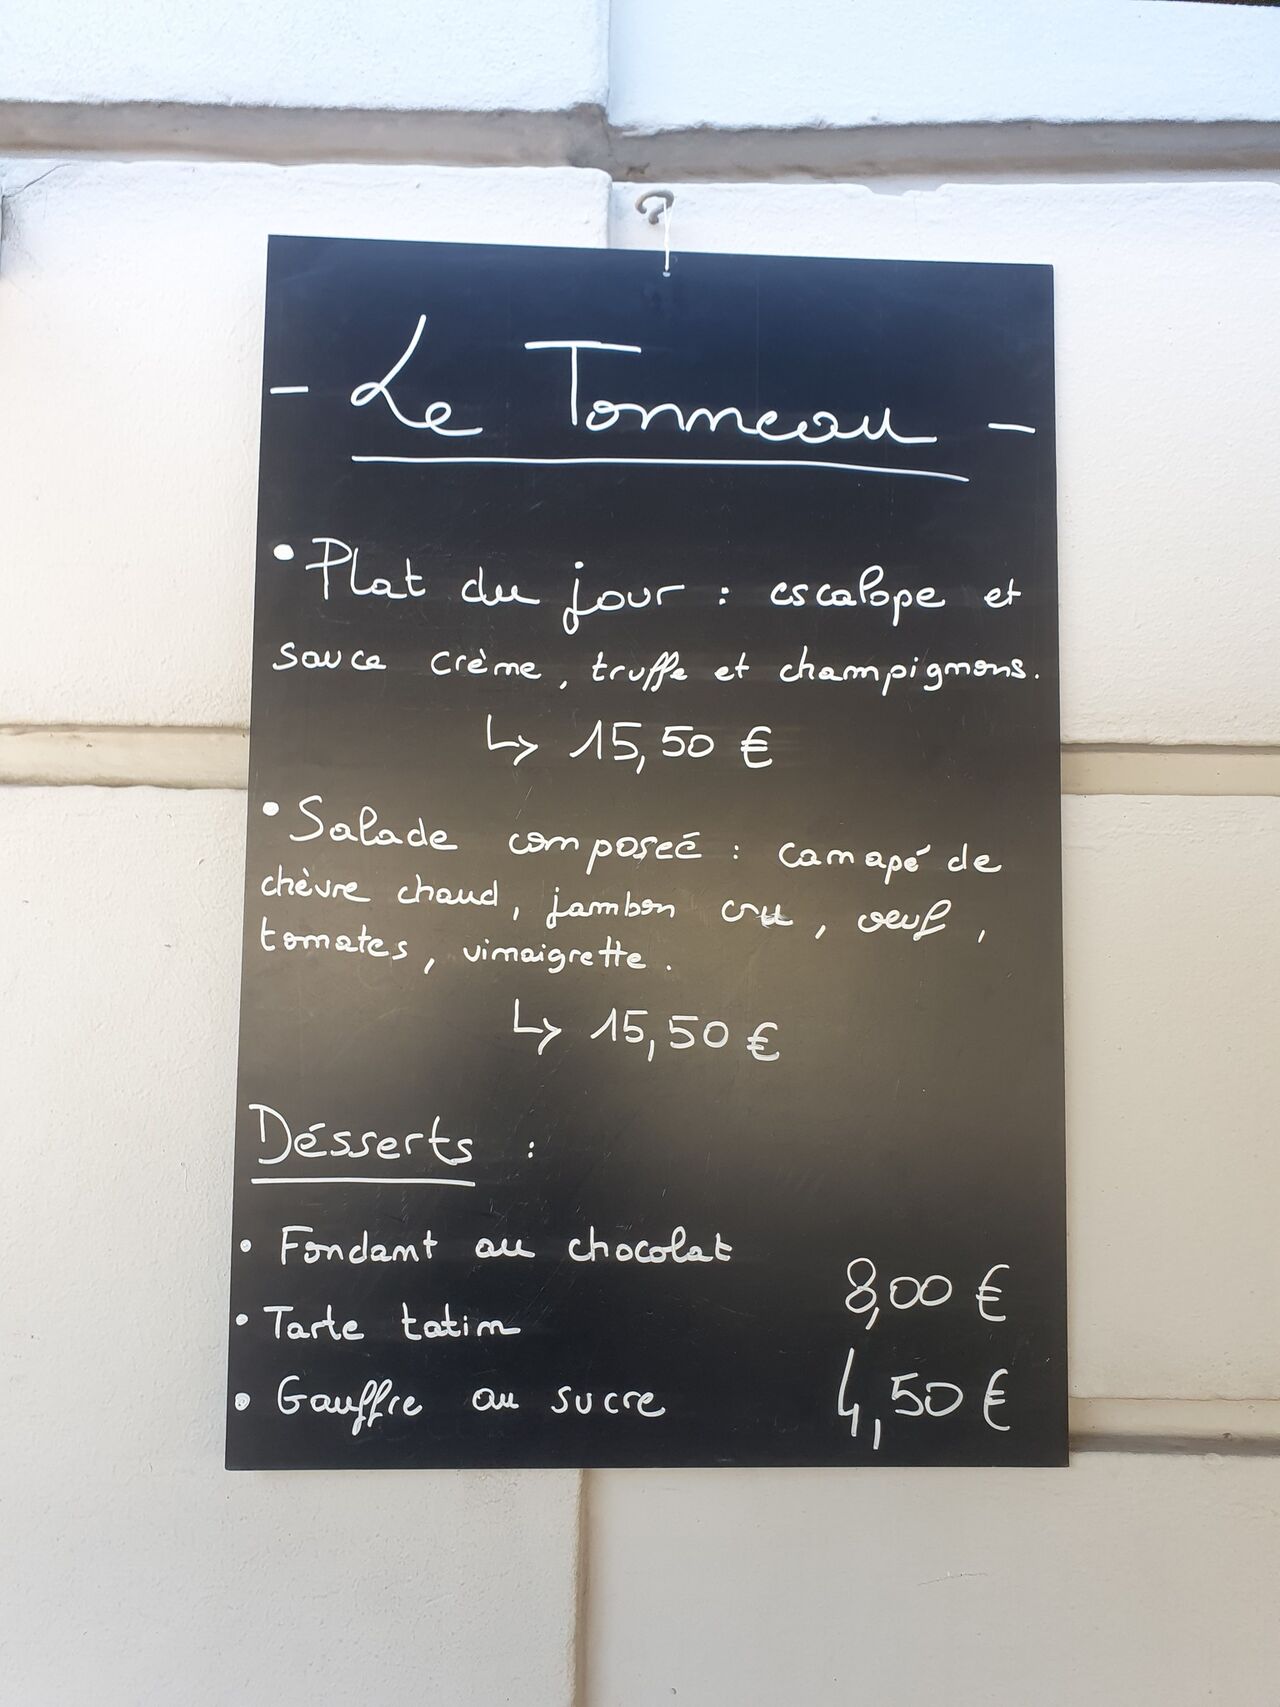 - Le Tonneau -
• Plat du jour : escalope et
sauce crème, truffe et champignons.
↳ 15,50 €
• Salade composeé : canapé de
chèvre chaud, jambon cru, oeuf,
tomates, vinaigrette.
↳ 15,50 €
Désserts :
• Fondant au chocolat
8,00 €
• Tarte tatin
• Gauffre au sucre 4,50 €